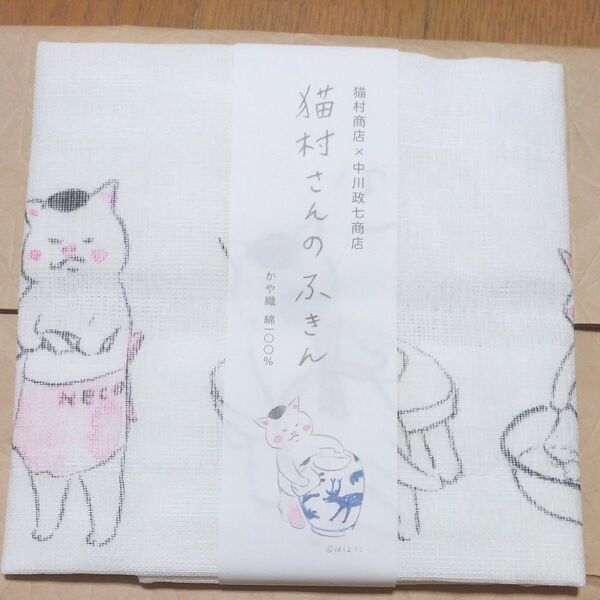 猫村商店×中川政七商店
猫村さんのふきん
かや織 綿一〇〇%
NECO
©ほしよりこ